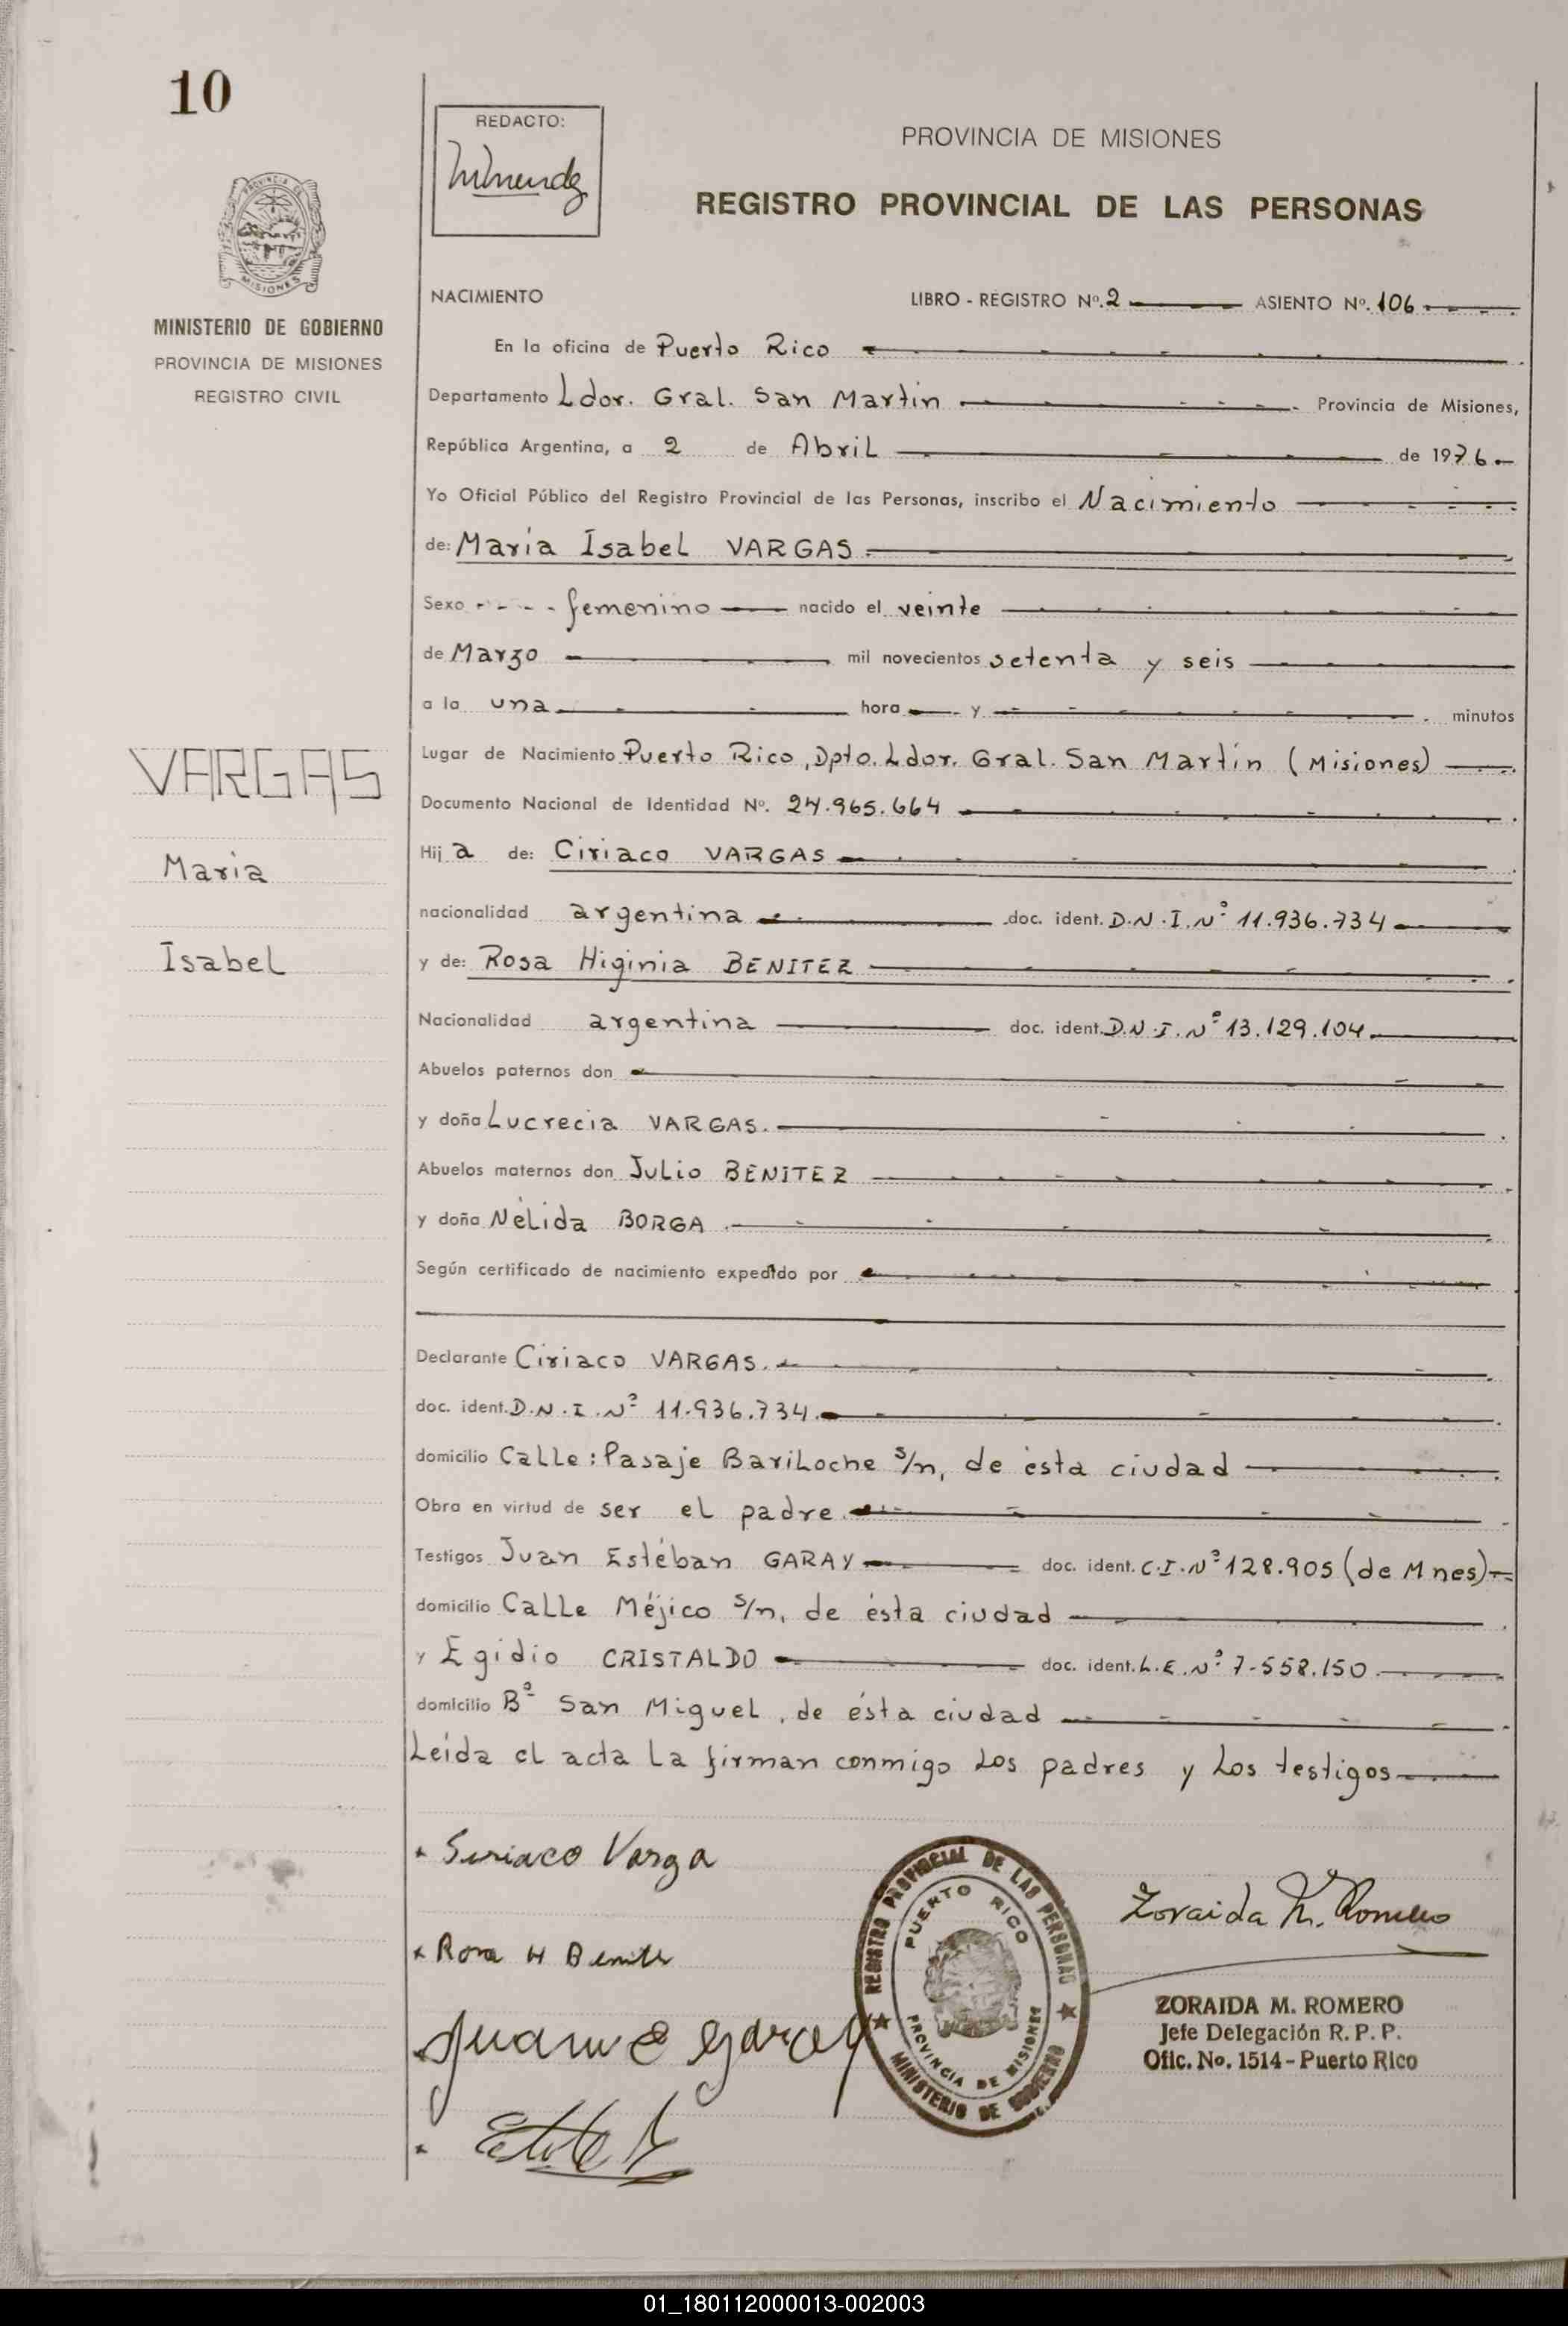 10
REDACTO:
PROVINCIA DE MISIONES
REGISTRO PROVINCIAL DE LAS PERSONAS
PROVINCIA DE
MISIONES
MINISTERIO DE GOBIERNO
PROVINCIA DE MISIONES
REGISTRO CIVIL
NACIMIENTO LIBRO - REGISTRO Nº. 2 ASIENTO Nº. 106
En la oficina de Puerto Rico
Departamento Ldor. Gral. San Martín Provincia de Misiones,
República Argentina, a 2 de Abril de 1976
Yo Oficial Público del Registro Provincial de las Personas, inscribo el Nacimiento
de: María Isabel VARGAS
Sexo femenino nacido el veinte
de Marzo mil novecientos setenta y seis
a la una hora y minutos
Lugar de Nacimiento Puerto Rico, Dpto. Ldor. Gral. San Martín (Misiones)
Documento Nacional de Identidad Nº. 24.965.664
Hij a de: Ciriaco VARGAS
nacionalidad argentina doc. ident. D.N.I. Nº 11.936.734
y de: Rosa Higinia BENITEZ
Nacionalidad argentina doc. ident. D.N.I. Nº 13.129.104
Abuelos paternos don
y doña Lucrecia VARGAS.
Abuelos maternos don Julio BENITEZ
y doña Nélida BORGA
Según certificado de nacimiento expedido por
Declarante Ciriaco VARGAS.
doc. ident. D.N.I. Nº 11.936.734.
domicilio Calle: Pasaje Bariloche s/n, de ésta ciudad
Obra en virtud de ser el padre.
Testigos Juan Estéban GARAY doc. ident. C.I. Nº 128.905 (de Mnes)
domicilio Calle Méjico s/n, de ésta ciudad
y Egidio CRISTALDO doc. ident. L.E. Nº 7.558.150
domicilio Bº San Miguel, de ésta ciudad
Leída el acta la firman conmigo los padres y los testigos
VARGAS
María
Isabel
Siriaco Varga
Rosa H Benite
Juan E Garay
REGISTRO PROVINCIAL DE LAS PERSONAS
PUERTO RICO
PROVINCIA DE MISIONES
MINISTERIO DE GOBIERNO
Zoraida M. Romero
ZORAIDA M. ROMERO
Jefe Delegación R. P. P.
Ofic. No. 1514 - Puerto Rico
01_180112000013-002003